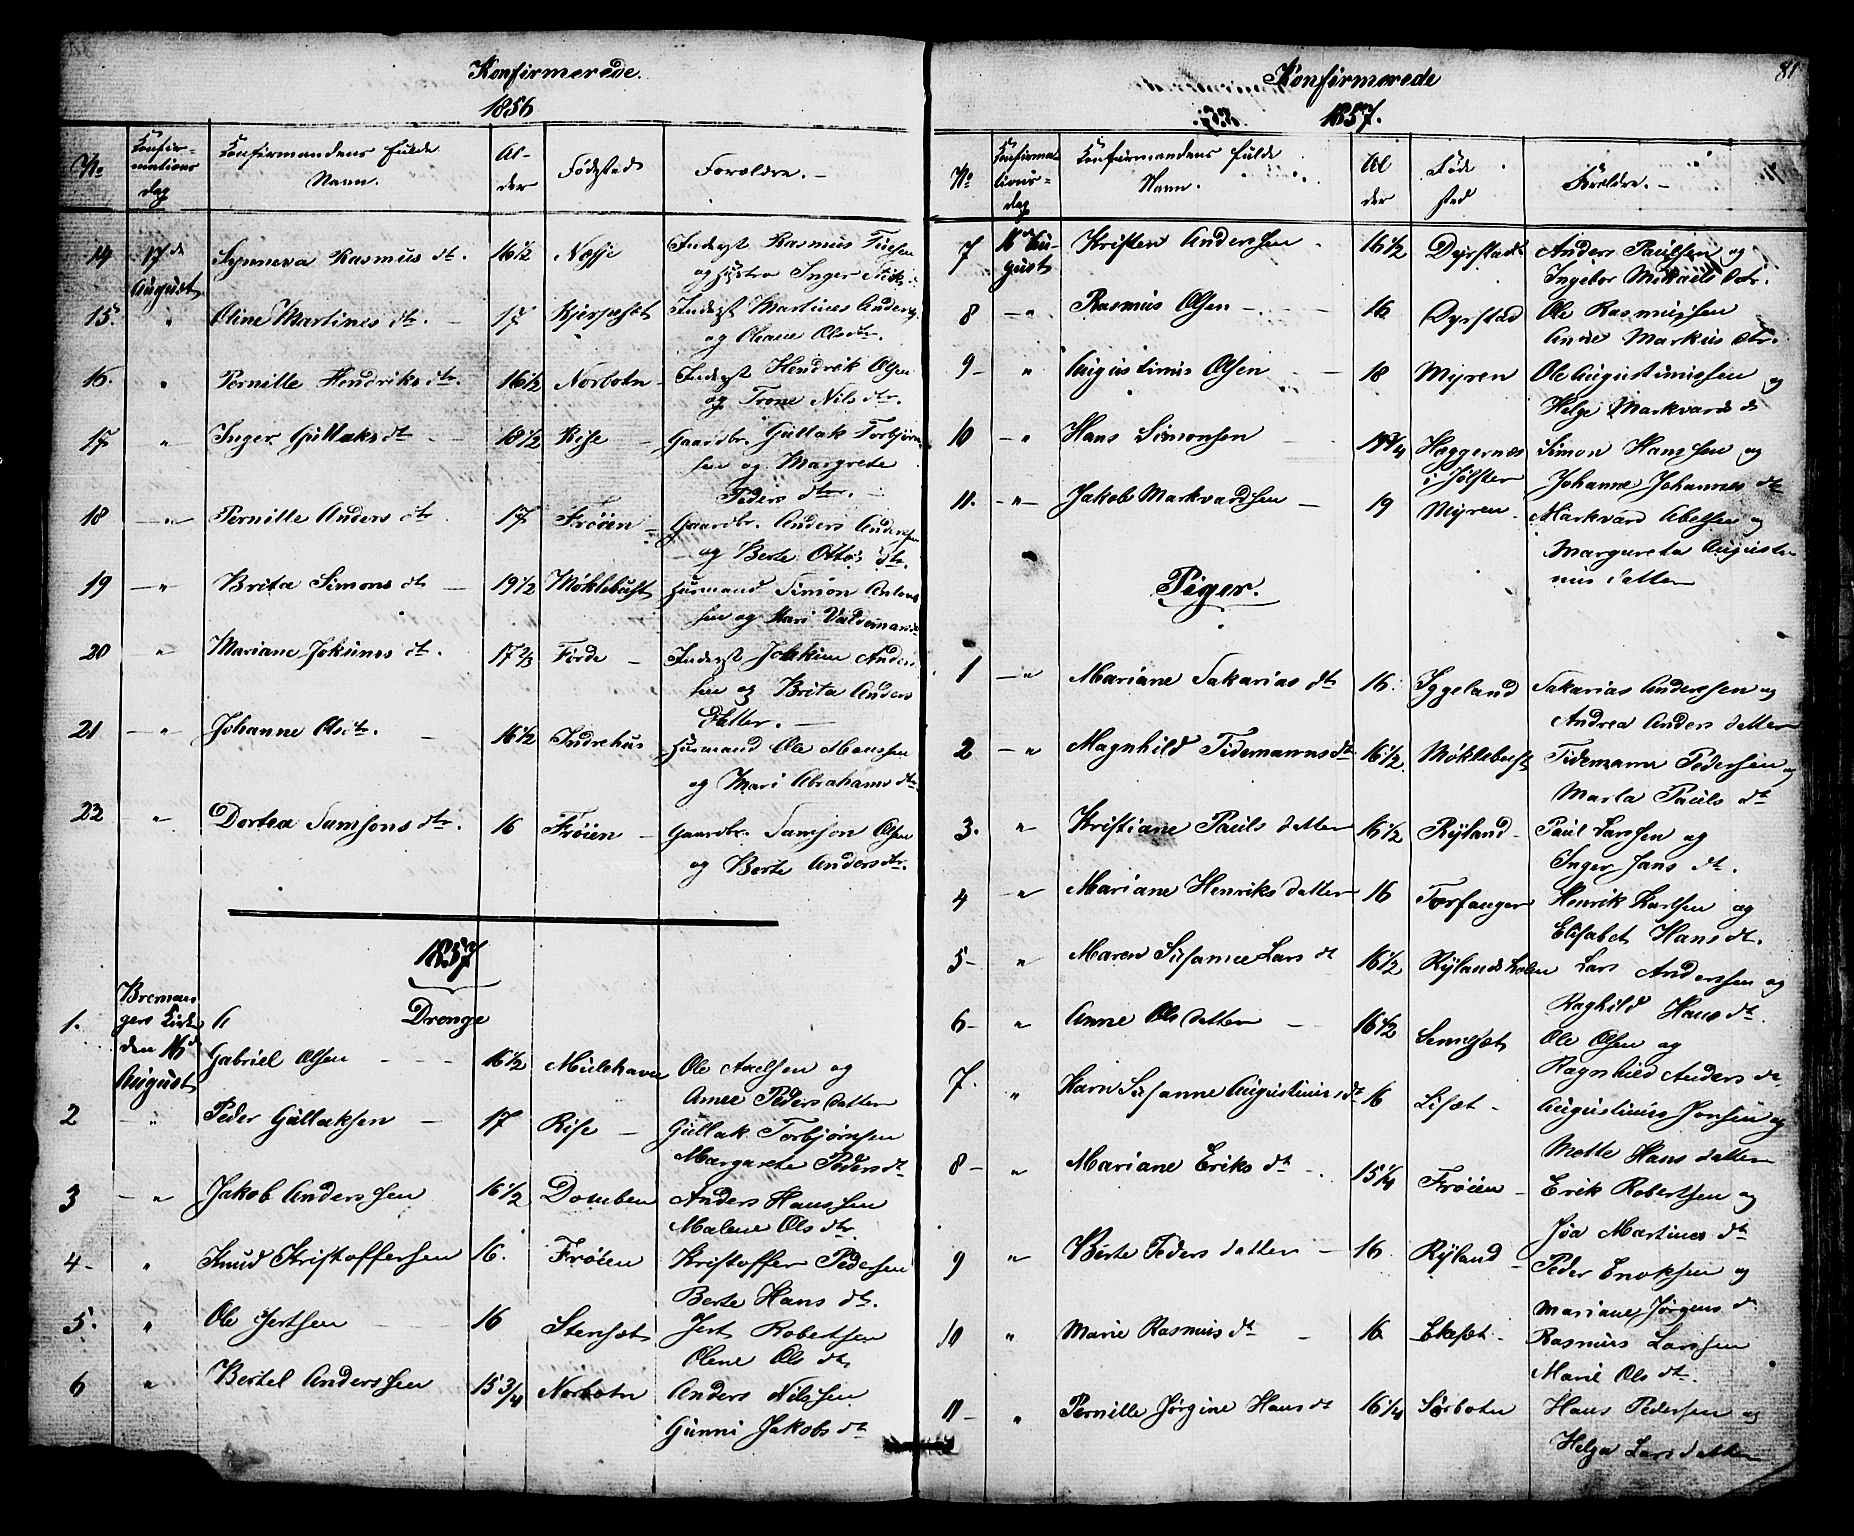 Konfirmerede.
1856
No
Konfir-
mations
dag
Konfirmandens fulde
Navn.
Al-
der
Fødestad
Forældre. -
14 17de August Synneva Rasmus dt. 16 1/2 Nesje Inderst Rasmus
og Hustru Inger
15. " Oline Martines dt. - 17 Inderst Martines
og Oleane Olsdtr.
16. " Pernille Hendriks dtr. 16 1/2 Norbotn - Inderst Hendrik Olsen
og Trone Nils dtr.
17 - " Inger Gullaks dt - 18 1/2 Rise - Gaardbr. Gullak Torbjørn
sen og Margrete
Peders dtr. -
18 - " Pernille Anders dtr 17 Frøien - Gaardbr. Anders Andersen
og Berte Ottos dtr.
19 - " Brita Simons dtr - 19 1/2 Møklebust Husmand Simon
sen og Mari Valdemars
20 - " Mariane Jokums dt. 17 2/3 Førde - Inderst Joakim Anders
sen og Brita Anders
Datter. -
21 - " Johanne Olsdtr. - 16 1/2 Indrehus Husmand Ole Monssen
og Mari Abrahams dtr
22 " Dortea Samsons dtr. 16 Frøien - Gaardbr. Samson Olsen
og Berte Anders dtr.
1857
Drenge
Breman
gers Kirke
den 16de
August
1. Gabriel Olsen - - - 16 1/2 Ole Axelsen og
Anne Peders datter
2 - " Peder Gullaksen - 17 Rise - Gullak Torbjørnsen
Margarete Peders dt
3 - " Jakob Anderssen 16 1/2 Domben Anders Hanssen
Malene Ols dtr.
4 - " Knud Kristoffersen 16. Frøien Kristoffer Pedersen
Berte Hans dtr.
5. " Ole Jertsen - - 16 Stensæt Jert Robertsen
Olene Ols dtr
6 " Bertel Anderssen 15 3/4 Norbotn Anders Nilssen
Gunni Jakobs dt
Konfirmerede
81
1857.
No
Konfirma-
tions-
dag
Konfirmandens fulde
Navn.
Al
der
Føde
stad
Forældre. -
7 16de Au-
gust Kristen Anderssen - 16 1/2 Dyrstad Anders Paulsen og
Ingebor Mikaels Datr.
8 - " Rasmus Olsen - - 16 Dyrstad Ole Rasmussen
Anne Markus dtr.
9 - " Augustinus Olsen - - 18 Myren Ole Augustinussen og
Helge Markvards dt
10 - " Hans Simonsen - 19 3/4 Haggernæs
i Jølster Simon Hanssen og
Johanne Johannes dt
11. - " Jakob Markvardsen - 19 Myren. Markvard Abelsen og
Margareta Augusti-
nus datter
Piger.
1 - " Mariane Sakarias dtr 16. Iggeland Sakarias Anderssen og
Andrea Anders datter
2 - " Magnhild Tidemanns dt. 16 1/2 Møklebust Tidemann Pedersen og
Marta Pauls dt
3. " Kristiane Pauls datter 16 1/2 Ryland - Paul Larssen og
Inger Jans dt.
4 " Mariane Henriks datter 16 Torfanger Henrik Karlsen og
Elisabet Hans dt.
5 - " Maren Susanne Lars dt 16 1/2 Lars Anderssen og
Raghild Hans dt.
6 - " Anne Ols datter - 16 1/2 Ole Olsen og
Ragnhild Anders dt.
7. " Karn Susanne Augustinus dt 16 Lisæt - Augustinus Jonsen og
Mette Hans datter
8 - " Mariane Eriks dt - 15 1/4 Frøien - Erik Robertsen og
Joa Martines dt
9 " Berte Peders datter - 16 Ryland - Peder Enoksen og
Mariane Jørgens dt
10 " Marie Rasmus dt - 16 Ekesæt - Rasmus Larssen
Marie Ols dt.
11 - " Pernille Jørgine Hans dt 16 1/4 Sørbotn Hans Pedersen og
Helga Lars datter